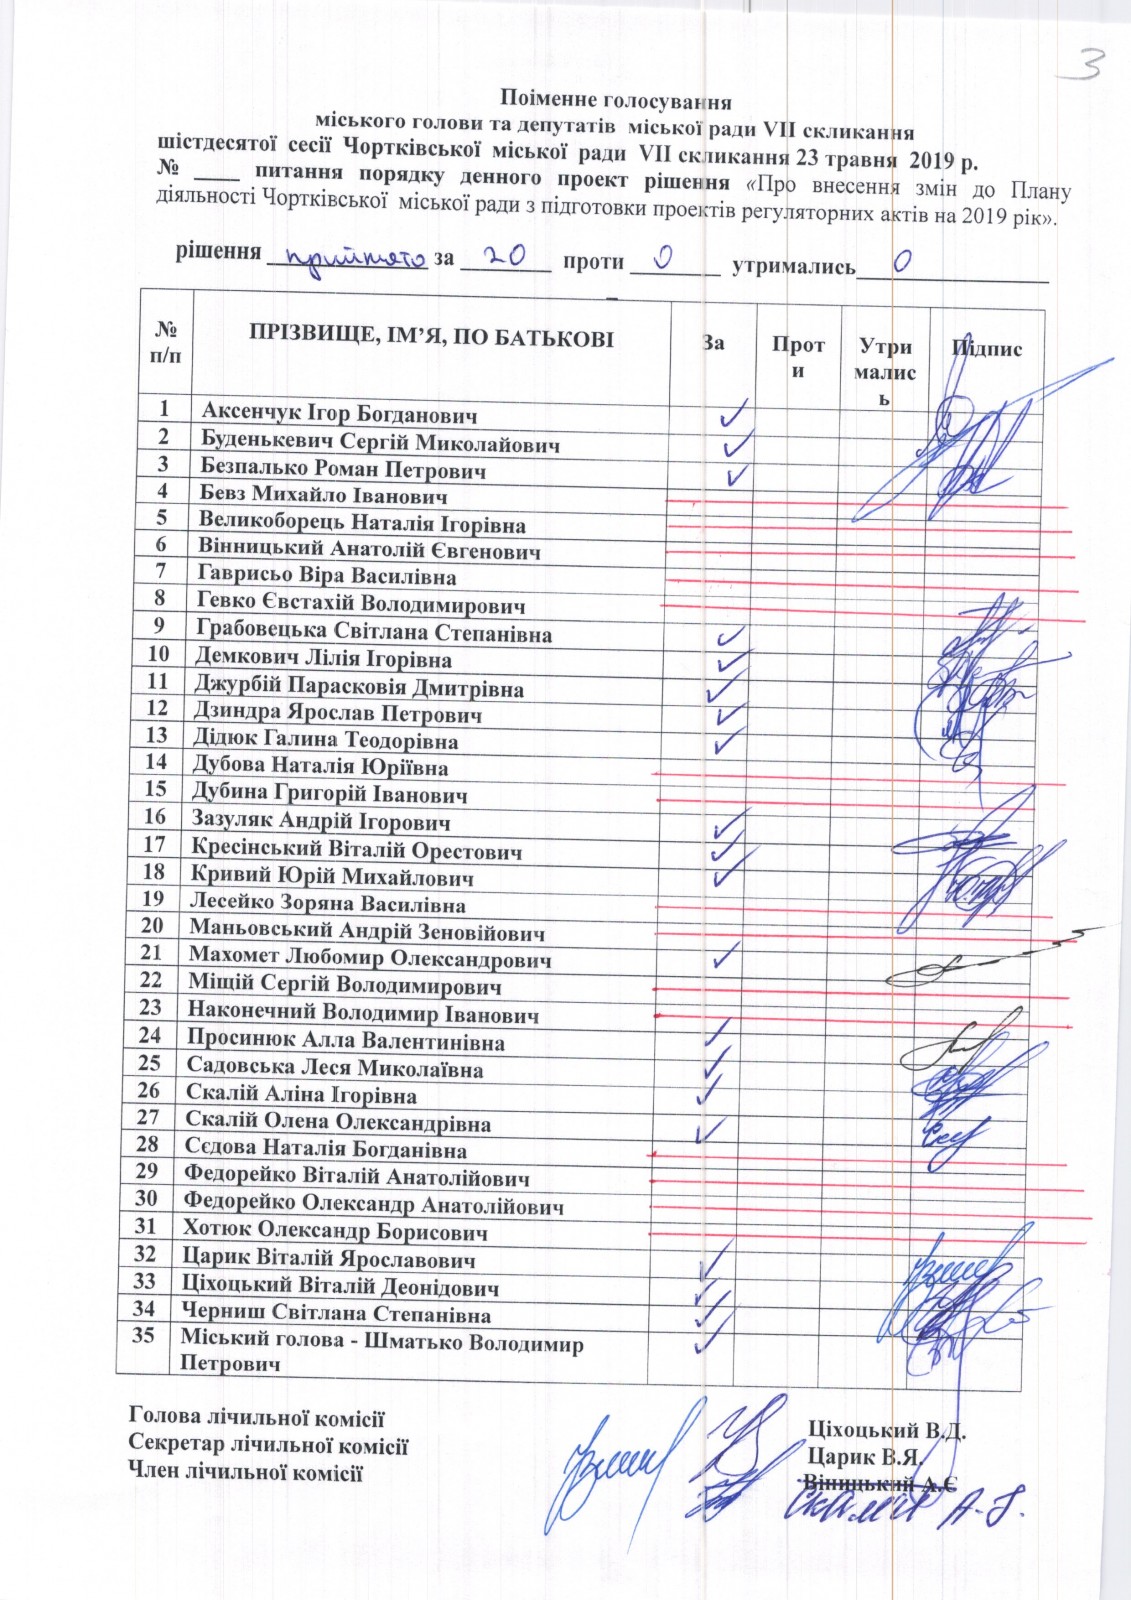 3
Поіменне голосування
міського голови та депутатів міської ради VII скликання
шістдесятої сесії Чортківської міської ради VII скликання 23 травня 2019 р.
№ ____ питання порядку денного проект рішення «Про внесення змін до Плану
діяльності Чортківської міської ради з підготовки проектів регуляторних актів на 2019 рік».
рішення прийнято за 20 проти 0 утримались 0
№ п/п ПРІЗВИЩЕ, ІМ’Я, ПО БАТЬКОВІ За Проти Утрималис ь Підпис
1 Аксенчук Ігор Богданович ✓
2 Буденькевич Сергій Миколайович ✓
3 Безпалько Роман Петрович ✓
4 Бевз Михайло Іванович
5 Великоборець Наталія Ігорівна
6 Вінницький Анатолій Євгенович
7 Гаврисьо Віра Василівна
8 Гевко Євстахій Володимирович
9 Грабовецька Світлана Степанівна ✓
10 Демкович Лілія Ігорівна ✓
11 Джурбій Парасковія Дмитрівна ✓
12 Дзиндра Ярослав Петрович ✓
13 Дідюк Галина Теодорівна ✓
14 Дубова Наталія Юріївна
15 Дубина Григорій Іванович
16 Зазуляк Андрій Ігорович ✓
17 Кресінський Віталій Орестович ✓
18 Кривий Юрій Михайлович ✓
19 Лесейко Зоряна Василівна
20 Маньовський Андрій Зеновійович
21 Махомет Любомир Олександрович ✓
22 Міщій Сергій Володимирович
23 Наконечний Володимир Іванович
24 Просинюк Алла Валентинівна ✓
25 Садовська Леся Миколаївна ✓
26 Скалій Аліна Ігорівна ✓
27 Скалій Олена Олександрівна ✓
28 Сєдова Наталія Богданівна
29 Федорейко Віталій Анатолійович
30 Федорейко Олександр Анатолійович
31 Хотюк Олександр Борисович
32 Царик Віталій Ярославович ✓
33 Ціхоцький Віталій Деонідович ✓
34 Черниш Світлана Степанівна ✓
35 Міський голова - Шматько Володимир ✓
Петрович
Голова лічильної комісії Ціхоцький В.Д.
Секретар лічильної комісії Царик В.Я.
Член лічильної комісії Віницький А.Є
Скалій А.І.